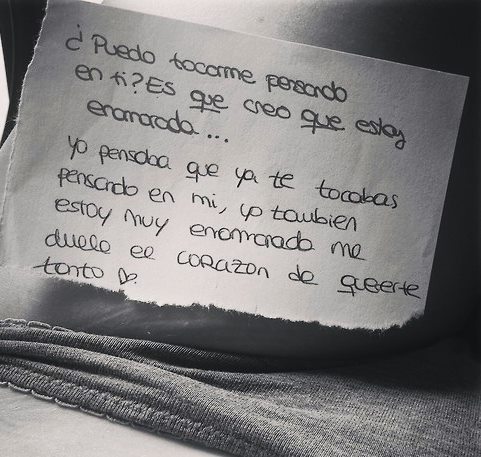 ¿Puedo tocarme pensando
en ti? Es que creo que estoy
enamorada...
Yo pensaba que ya te tocabas
pensando en mi, yo tambien
estoy muy enamorada me
duele el corazon de quererte
tanto ♡.